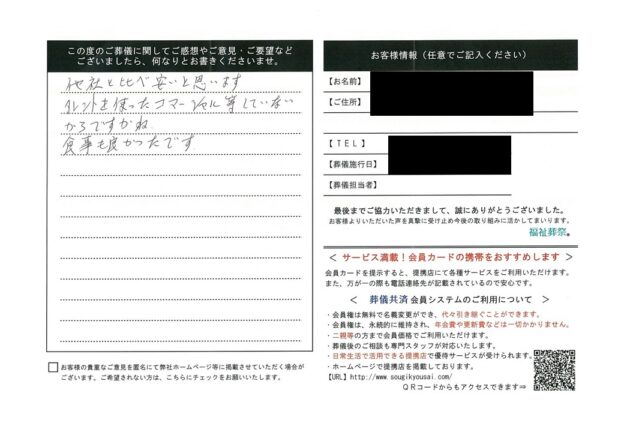 この度のご葬儀に関してご感想やご意見・ご要望など
ございましたら、何なりとお書きくださいませ。
他社と比べ安いと思います
タレントを使ったコマーシャル等していない
からですかね
食事も良かったです
お客様の貴重なご意見を匿名にて弊社ホームページ等に掲載させていただく場合が
ございます。ご希望されない方は、こちらにチェックをお願いいたします。
お客様情報（任意でご記入ください）
【お名前】
【ご住所】
【ＴＥＬ】
【葬儀施行日】
【葬儀担当者】
最後までご協力いただきまして、誠にありがとうございました。
お客様よりいただいた声を真摯に受け止め今後の取り組みに活かしてまいります。
福祉葬祭。
＜ サービス満載！会員カードの携帯をおすすめします ＞
会員カードを提示すると、提携店にて各種サービスをご利用いただけます。
また、万が一の際も電話連絡先が記載されているので安心です。
＜ 葬儀共済 会員システムのご利用について ＞
・会員権は無料で名義変更ができ、代々引き継ぐことができます。
・会員権は、永続的に維持され、年会費や更新費などは一切かかりません。
・二親等の方まで会員価格でご利用いただけます。
・葬儀後のご相談も専門スタッフが対応いたします。
・日常生活で活用できる提携店で優待サービスが受けられます。
・ホームページで提携店を掲載しております。
【URL】http://www.sougikyousai.com/
ＱＲコードからもアクセスできます⇒